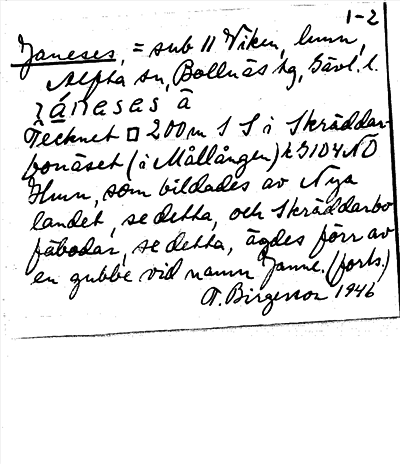 1-2
Janeses, = sub 11 Viken, hmn,
Alfta sn, Bollnäs tg, Gävl. l.
jánesəs å
Tecknet □ 200m S S i Skräddar
bonäset (i Mållången) k 3104 NO
Hmn, som bildades av Nya
landet, se detta, och Skräddarbo
fäbodar, se detta, ägdes förr av
en gubbe vid namn Janne. (forts.)
T. Birgersson 1946